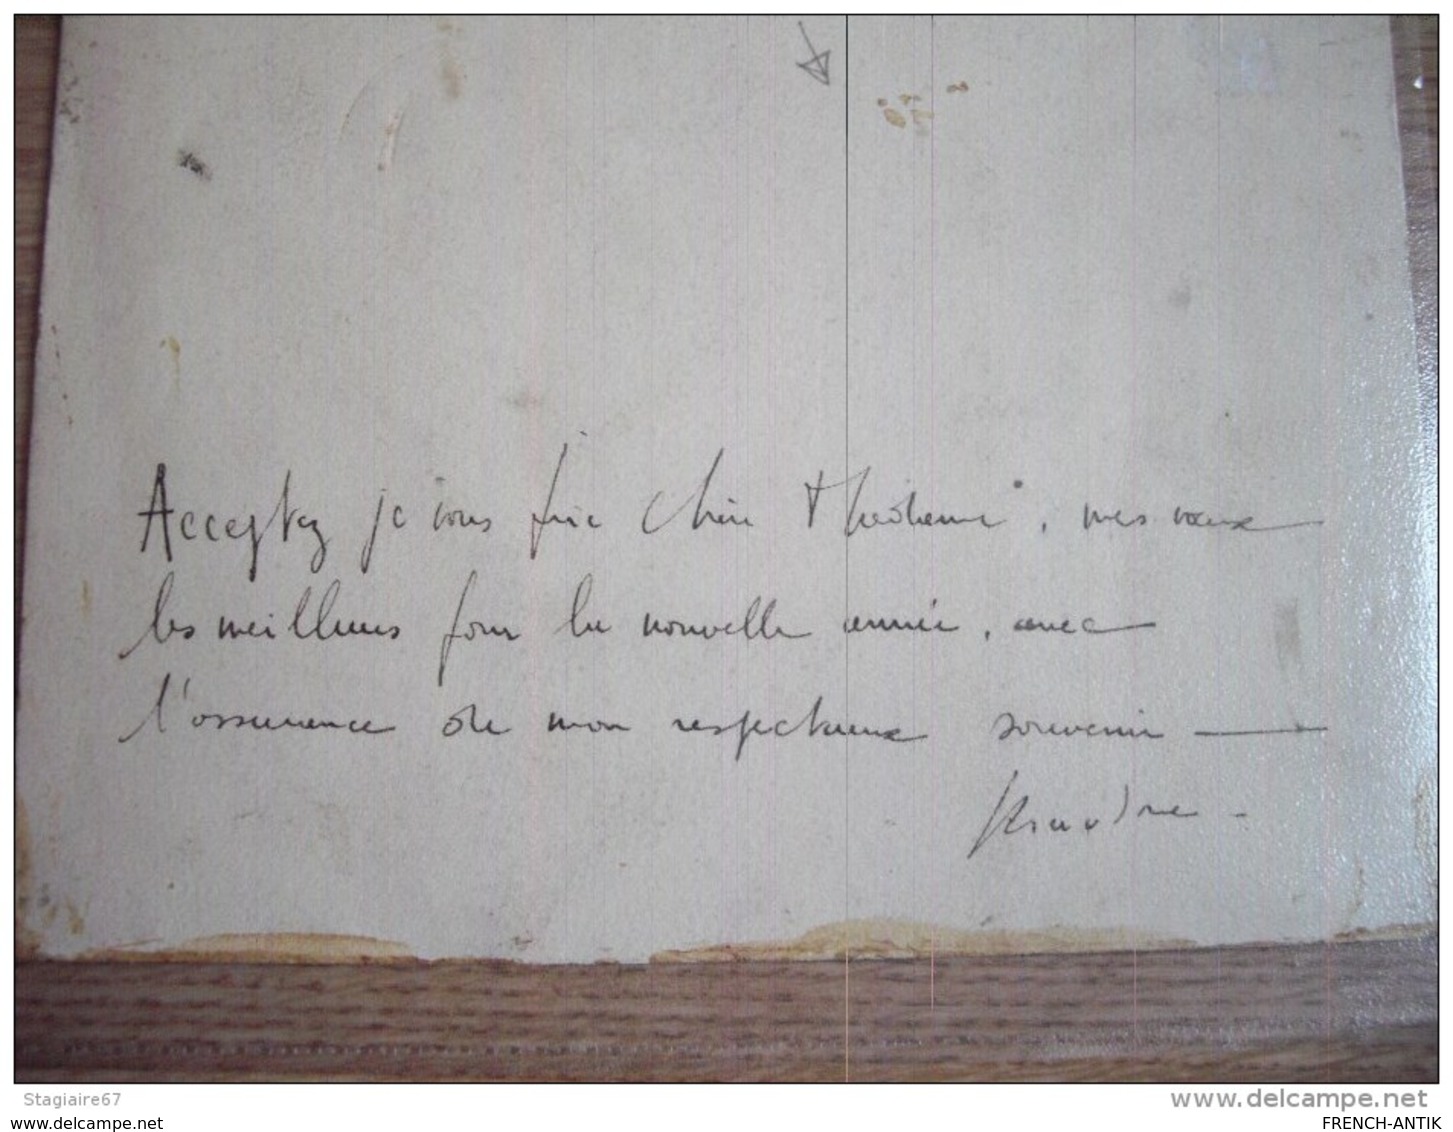 Acceptez je vous prie chère Madame, mes vœux
les meilleurs pour la nouvelle année, avec
l'assurance de mon respectueux souvenir —
Stagiaire67
www.delcampe.net
www.delcampe.net
FRENCH-ANTIK